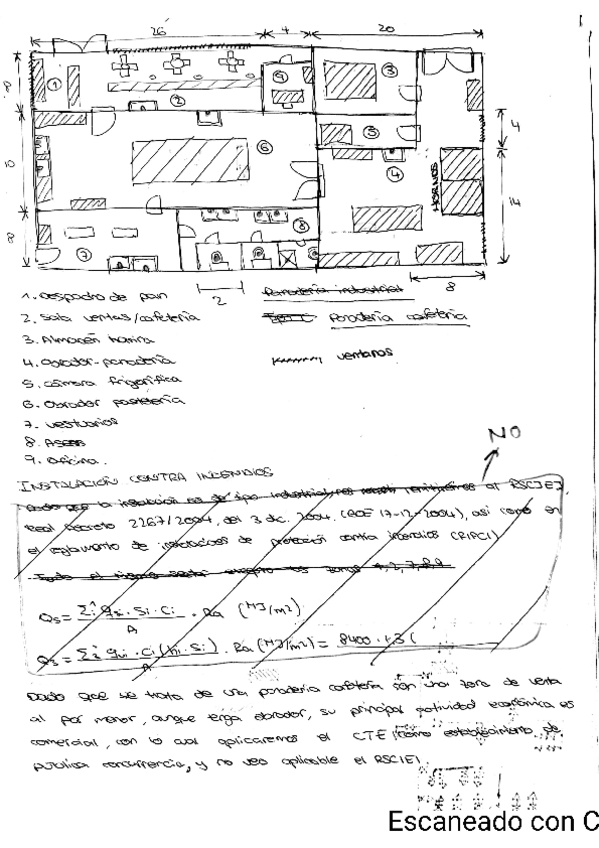 26 4 20
8
1 2 9 3
5
4
6 4
10
HORNOS
14
8
7 8
2
8
1. Despacho de pan
2. Sala ventas/cafetería
3. Almacén harina
4. Obrador-panadería
5. Cámara frigorífica
6. Obrador pastelería
7. Vestuarios
8. Aseos
9. Oficina.
Panadería industrial
Panadería cafetería
ventanas
NO
INSTALACIÓN CONTRA INCENDIOS
Dado que la instalación es de tipo industrial, nos remitiremos al RSCIEI,
Real Decreto 2267/2004, del 3 dic. 2004. (BOE 17-12-2004), así como en
el reglamento de instalaciones de protección contra incendios (RIPCI)
Qs = Σi qsi · Si · Ci / A · Ra (MJ/m2)
Qs = Σi qvi · Ci (hi · Si) / A · Ra (MJ/m2) = 8400 · 1.3 (
Dado que se trata de una panadería cafetería con una zona de venta
al por menor, aunque tenga obrador, su principal actividad económica es
comercial, con lo cual aplicaremos el CTE (como establecimiento de
pública concurrencia, y no sea aplicable el RSCIEI.
Escaneado con C